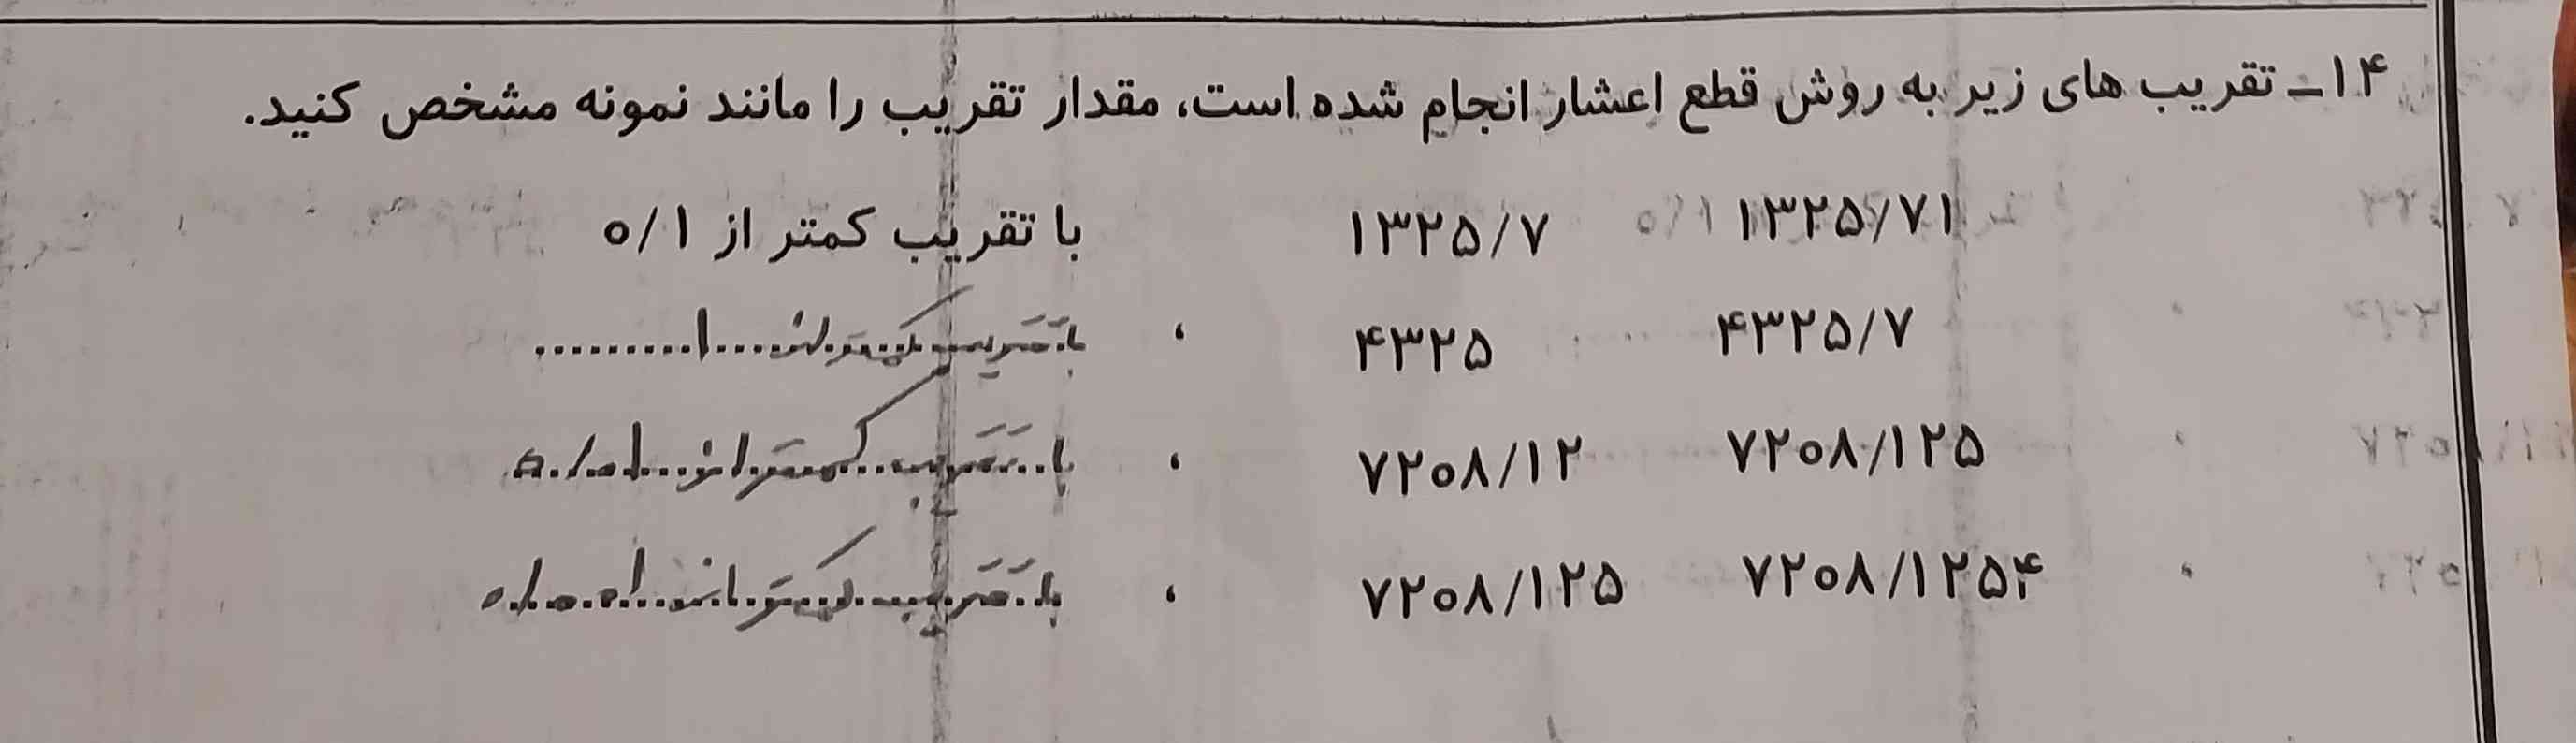 ۱۴ــ تقریب های زیر به روش قطع اعشار انجام شده است، مقدار تقریب را مانند نمونه مشخص کنید.
۱۳۲۵/۷۱ ۱۳۲۵/۷ با تقریب کمتر از ۰/۱
۴۳۲۵/۷ ۴۳۲۵ ، با تقریب کمتر از ۱
۷۲۰۸/۱۲۵ ۷۲۰۸/۱۲ ، با تقریب کمتر از ۰/۰۱
۷۲۰۸/۱۲۵۴ ۷۲۰۸/۱۲۵ ، با تقریب کمتر از ۰/۰۰۱